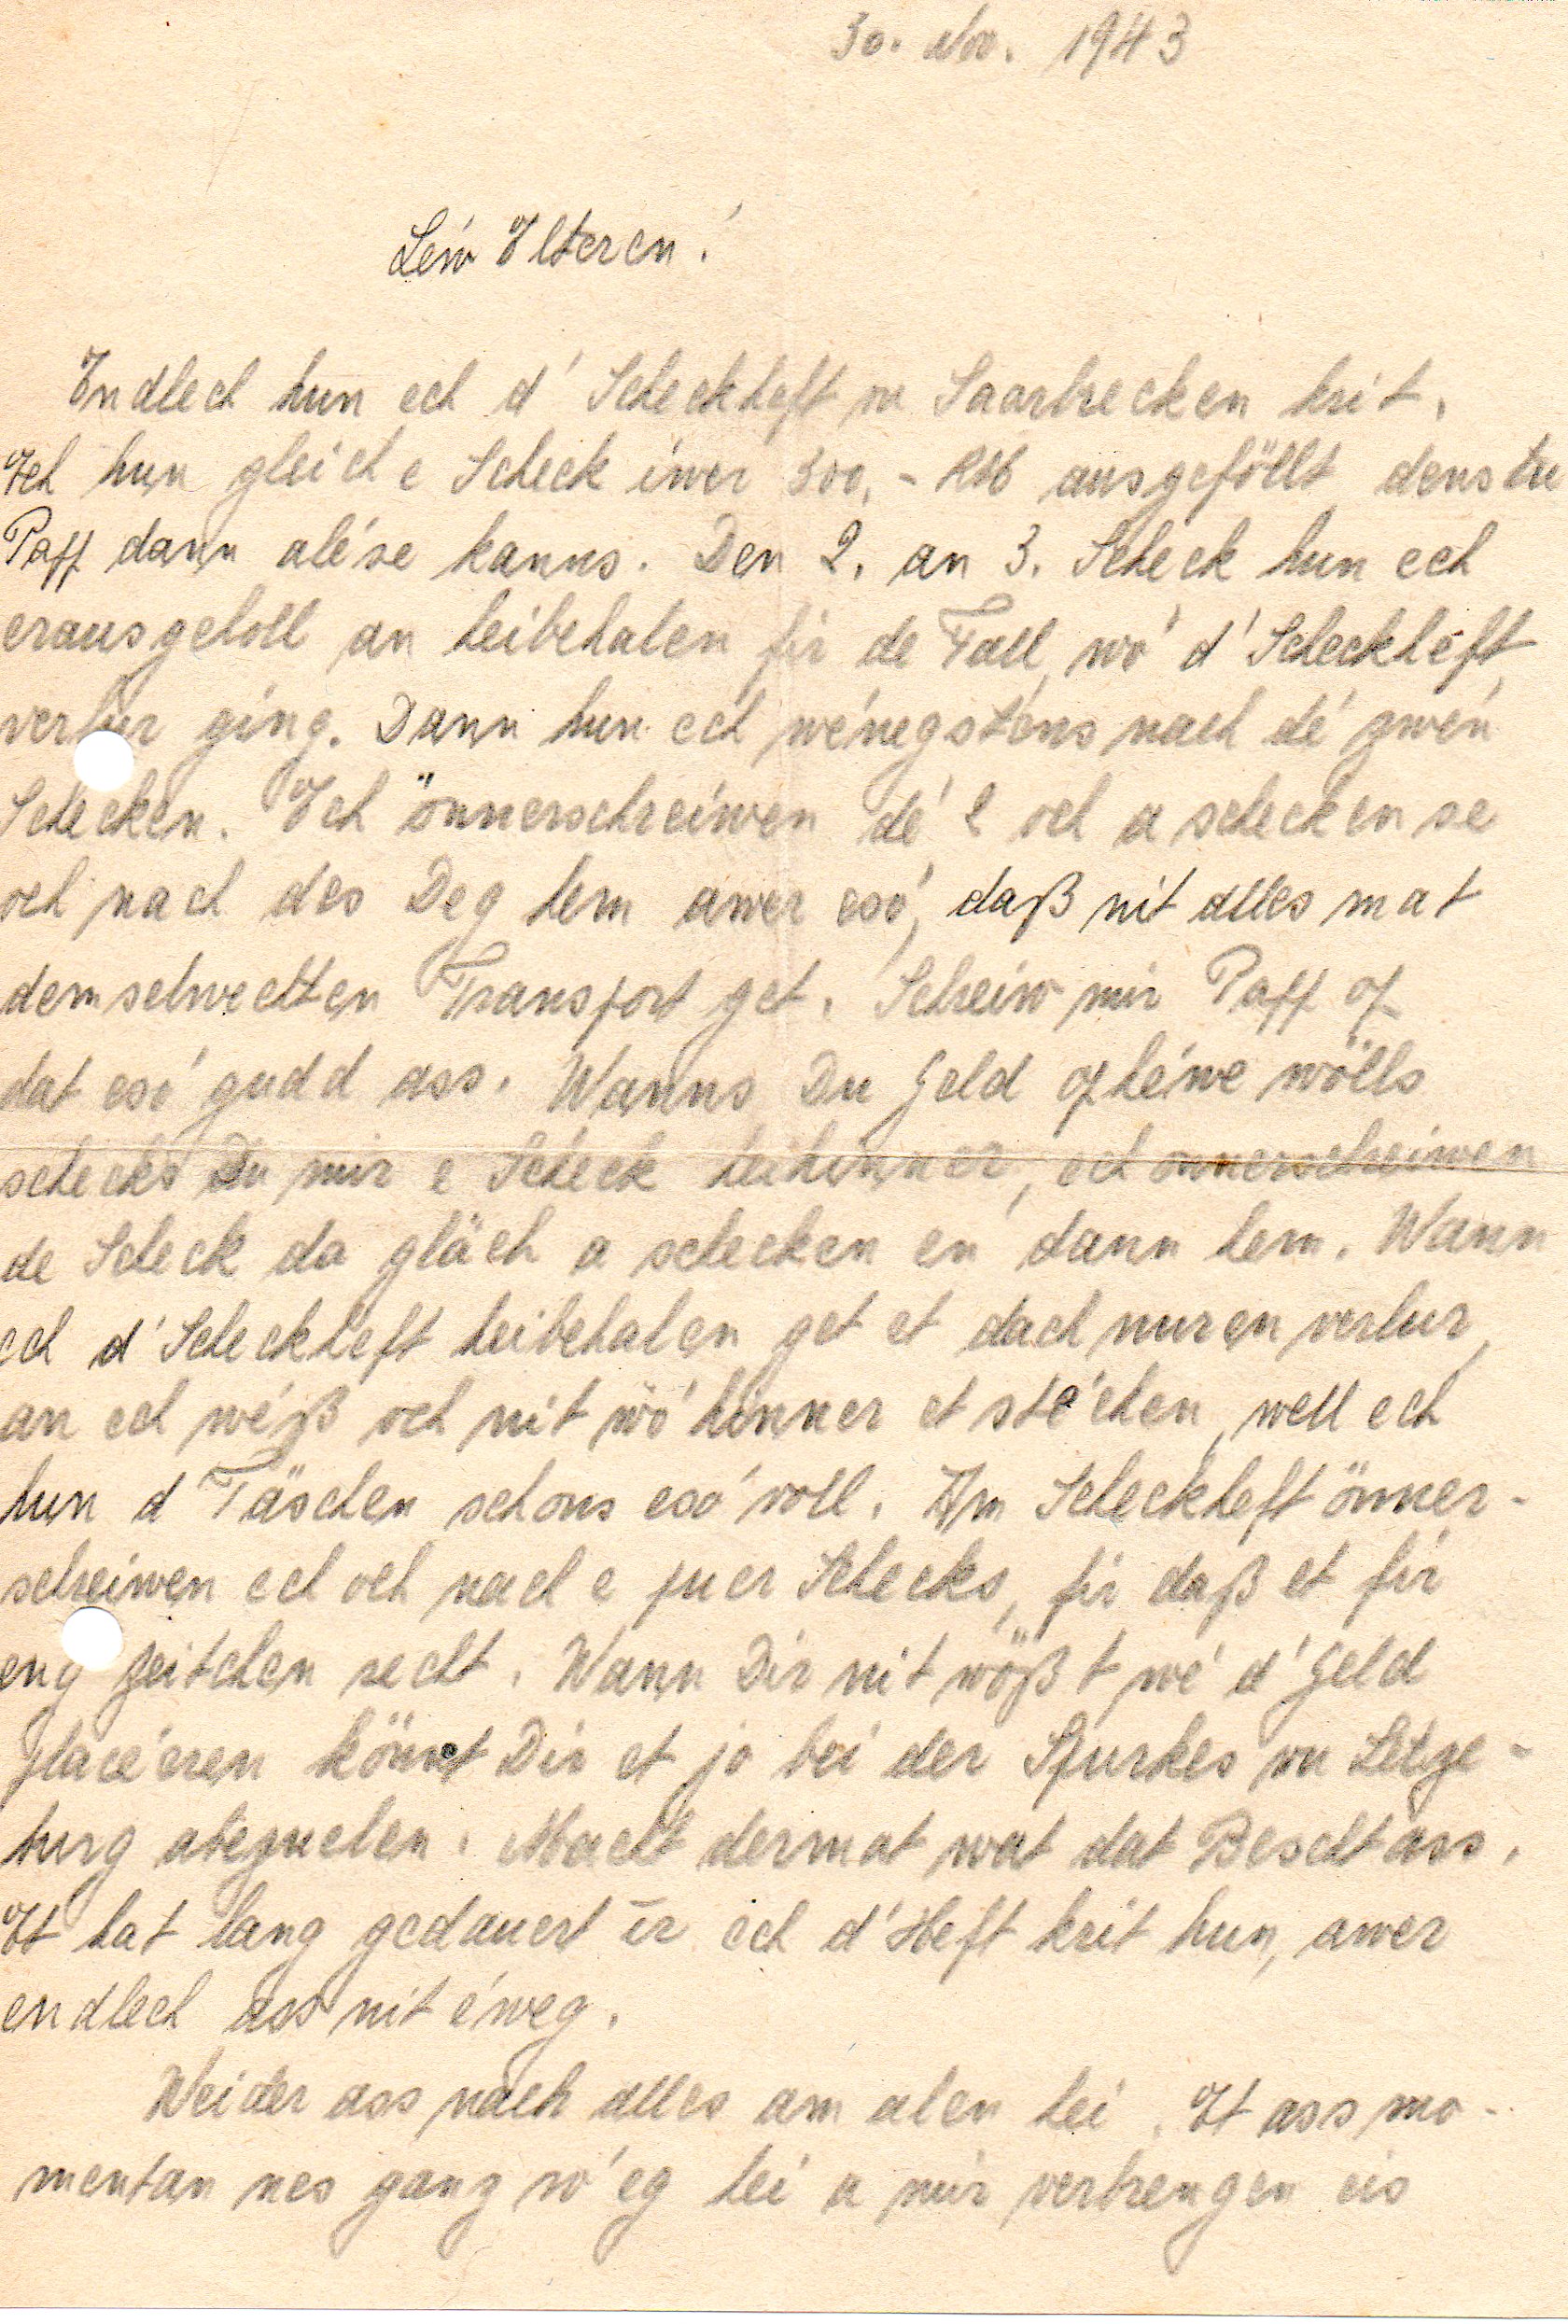 30. Nov. 1943
Léiw Elteren!
Endlech hun ech d' Scheckheft vu Saarbrecken krit.
Ech hun gleich e Scheck iwer 300,- RM ausgeföllt dens tu
Paff dann alése kanns. Den 2. an 3. Scheck hun ech
erausgeholl an heibehalen fir de Fall, wó d' Scheckheft
verlur ging. Dann hun ech wénegstens nach dé zwén
Schecken. Ech önnerschreiwen dé 2 och a schecken se
och nach des Deg hem awer esó, daß nit alles mat
demselwechten Transport get. Schreiw mir Paff of
dat esó gudd ass. Wanns Du Geld ofhéwe wölls
schecks Du mir e Scheck heihinner, ech önnerschreiwen
de Scheck da gläch a schecken en dann hem. Wann
ech d' Scheckheft heibehalen get et dach nuren verlur,
an ech wéß och nit wó hinner et stéchen, well ech
hun d Täschen schons esó voll. Am Scheckheft önner-
schreiwen ech och nach e puer Schecks, fir daß et fir
eng Zeitchen recht. Wann Dir nit wößt wé d' Geld
placéeren könnt Dir et jo bei der Spurkes vu Letze-
burg abezuelen. Maacht dermat wat dat Bescht ass.
Et hat lang gedauert ir ech d' Heft krit hun, awer
endlech ass nit éweg.
Weider ass nach alles am alen hei. Et ass mo-
mentan nes ganz ró eg hei a mir verbrengen eis